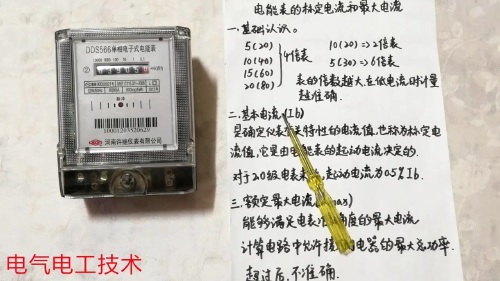 DDS566单相电子式电能表
10001203520629
河南许继仪表有限公司
电气电工技术
电能表的标定电流和最大电流
一.基础认识。
5(20)
10(40)
15(60)
20(80)
4倍表
10(20)⇒2倍表
5(30)⇒6倍表
表的倍数越大,在低电流时计量
越准确.
二.基本电流(Ib)
是确定仪表 特性的电流值,也称为标定电
流值,它是由电能表的起动电流决定的.
对于2.0级电表来 起动电流为0.5%Ib.
三.额定最大电流( max)
能够满足电表 准确度的最大电流
计算电路中允许接 用电器的最大总功率.
超过后,不准确.